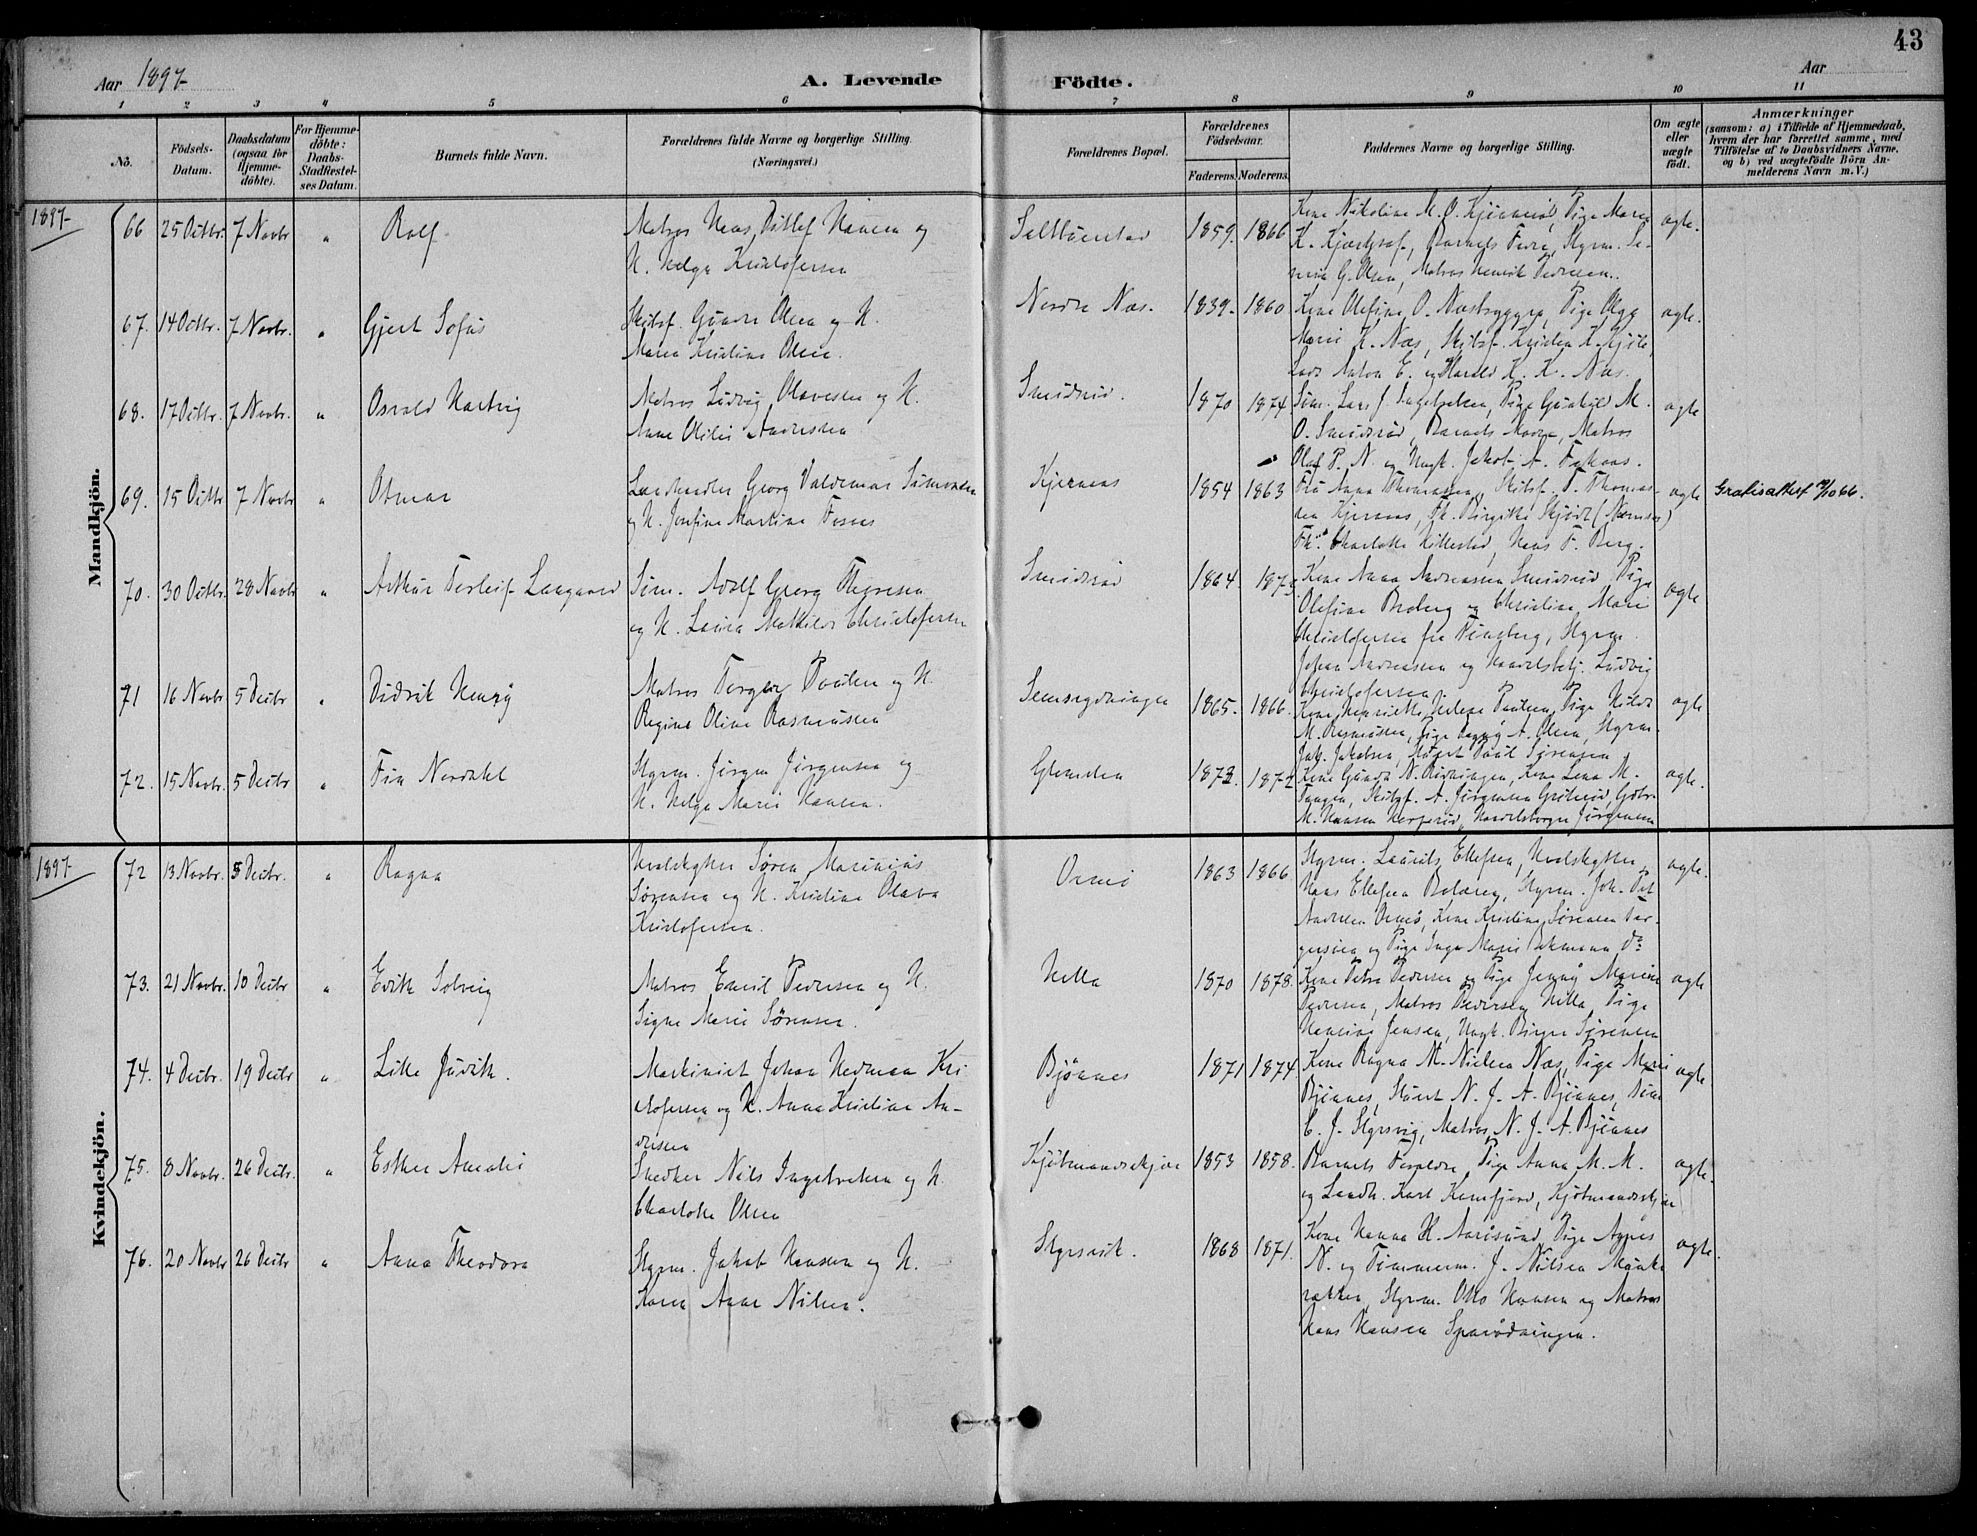 43
Aar 1897-
A. Levende Födte.
Aar
1 2 3 4 5 6 7 8 9 10 11
No.
Födsels-Datum.
Daabsdatum (ogsaa for Hjemme-döbte).
For Hjemme-döbte: Daabs-Stadfæstel-ses Datum.
Barnets fulde Navn.
Forældrenes fulde Navne og borgerlige Stilling.
(Næringsvei.)
Forældrenes Bopæl.
Forældrenes Födselsaar.
Faderens. Moderens.
Faddernes Navne og borgerlige Stilling.
Om ægte eller uægte födt.
Anmærkninger
(saasom: a) i Tilfælde af Hjemmedaab, hvem der har forrettet samme, med Tilföielse af to Daabsvidners Navne, og b) ved uægtefödte Börn An-melderens Navn m. V.)
1897-
Mandkjön.
66 25 Octbr. 7 Novbr " Rolf
Matros Hans Ditlef Hansen og
H. Helga Kristofersen
1859. 1866
Kone Nikoline M. O. Pige Maren
K. Barnets Fedre, Styrm.
G. Olsen, Matros Henrik Pedersen.
ægte.
67. 14 Octbr. 7 Novbr. " Gjert Sofus
Skibsf. Olsen og H.
Maren Kristine Olsen.
Nordre Næs. 1839. 1860
Kone Olefine O. Næsbrygga, Pige Olga
Marie K. Næs, Skibsf. Kristen K.
Anton E. og Harald K. K. Næs.
ægte.
68. 17 Octbr. 7 Novbr. " Osvald Hartvig
Matros Ludvig Olavesen og H.
Anne Otilie Andressen
Smidsrød. 1870 1874
Lars J. Ingebretsen, Pige Gunhild M.
O. Smidsrød, Barnets Moder, Matros
Olaf P. N. og Ungk. Jakob A.
ægte
69. 15 Octbr 7 Novbr " Otmar
Landhandler Georg Valdemar
og H. Josefine Martine
Kjernæs 1854 1863
Fru Anna Thomassen, Skibsf. T. Thomas-
sen Kjernæs, Fk. Birgitte
Charlotte Hillestad, Hans F. Berg.
ægte Gratisattest
70. 30 Octbr. 28 Novbr " Arthur Torleif Langaard
Søm. Adolf Georg Thoresen
og H. Laura Mathilde Christofersen
Smidsrød 1864. 1873
Kone Anna Andreassen Smidsrød, Pige
Olefine Broberg og Christine Marie
Christofersen fra Tønsberg, Styrm.
Johan Andreassen og Handelsbetj. Ludvig
Christofersen
ægte
71 16 Novbr 5 Decbr " Didrik Henry
Matros Torger Poulsen og H.
Regine Oline Rasmussen
1865. 1866.
Kone Henriette Helene Poulsen, Pige Hilda
M. Rasmussen, Pige A. Olsen, Styrm.
Joh. Jakobsen, Poul Sørensen
ægte
72. 15 Novbr. 5 Decbr " Finn Nordahl
Styrm. Jørgen Jørgensen og
H. Helga Marie Hansen.
Glomsten 1873. 1872
Kone N. Kone Lena M.
Tangen, Skibsf. A. Jørgensen
M. Hansen Jørgensen
ægte.
1897-
Kvindekjön.
72 13 Novbr. 5 Decbr. " Ragna
Hvalskytter Søren Marinius
Sørensen og H. Kristine Olava
Kristofersen.
1863 1866.
Styrm. Laurits Ellefsen, Hvalskytter
Hans Ellefsen Bolæren, Styrm. Joh. Pet.
Andresen Kone Kristine Sørensen
og Pige Inga Marie
ægte.
73. 21 Novbr. 10 Decbr " Edith Solveig
Matros Emil Pedersen og H.
Signe Marie Sørensen.
Hella 1870 1878.
Kone Petra Pedersen og Pige Jenny Marine
Pedersen, Matros Pedersen Hella, Pige
Hansine Jensen, Ungk. Birger Sørensen
ægte
74. 4 Decbr. 19 Decbr " Lilla Judith.
Maskinist Johan Herman Kri-
stofersen og H. Anna Kristine An-
dersen
Bjønnes 1871 1874
Kone Ragna M. Nielsen Næs, Pige Marie
Bjønnes, N. J. A. Bjønnes,
C. J. Styrsvig, Matros N. J. A. Bjønnes
ægte
75. 8 Novbr. 26 Decbr. " Esther Amalie
Snedker Nils Ingebretsen og H.
Charlotte Olsen
Kjøbmandsskjær 1853 1858.
Barnets Forældre, Pige Anna M. M.
og Landh. Karl Kamfjord, Kjøbmandsskjær
ægte.
76. 20 Novbr 26 Decbr " Anna Theodora
Styrm. Jakob Hansen og H.
Karen Anne Nilsen.
Styrsvik. 1868 1871.
Kone Hanna H. Aarøsund, Pige Agnes
N. og Timmerm. J. Nilsen Munke-
rækken, Styrm. Otto Hansen og Matros
Hans Hansen
ægte.